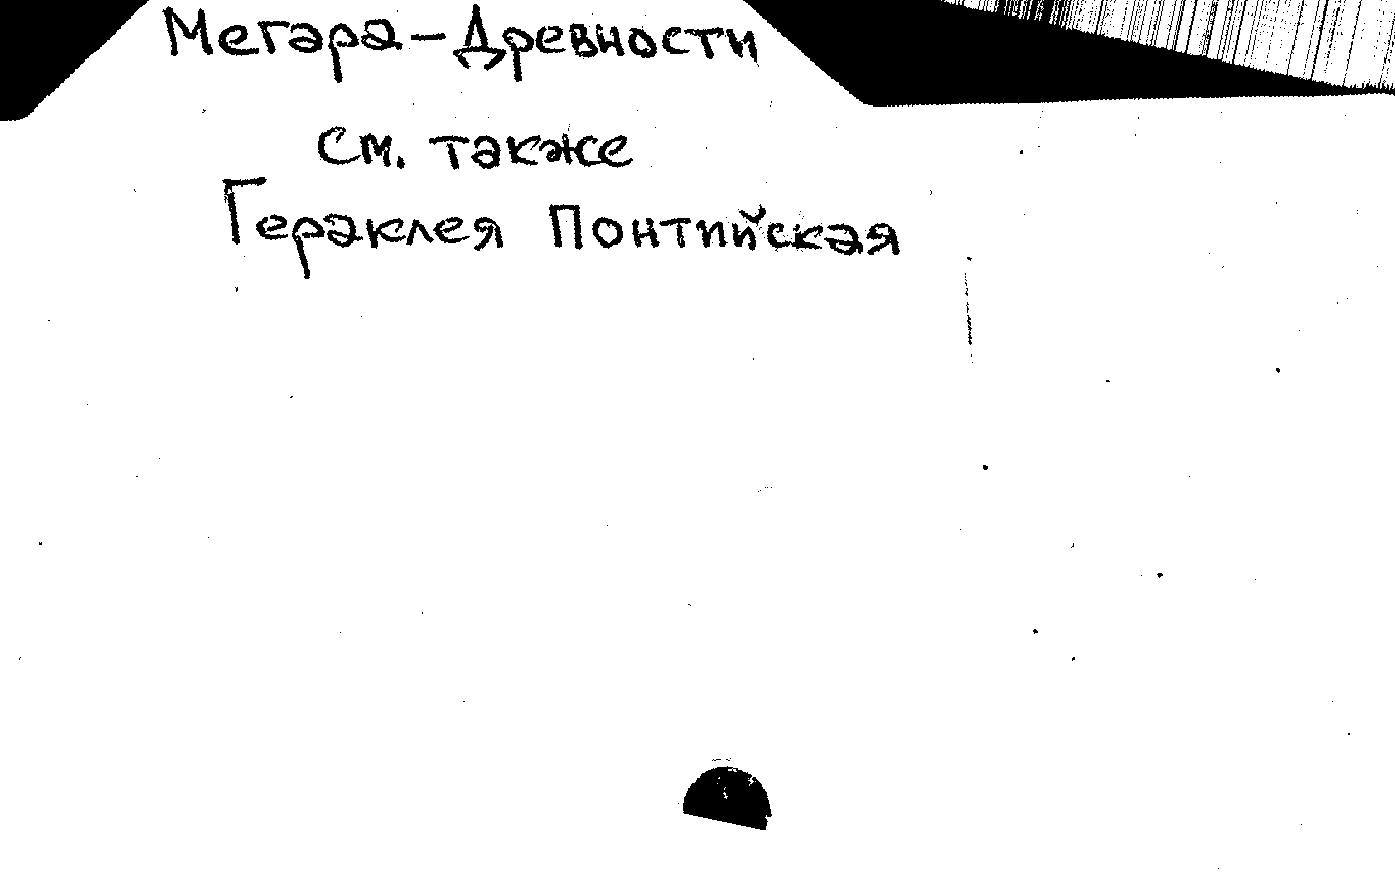 Мегара-Древности
см. также
Гераклея Понтийская